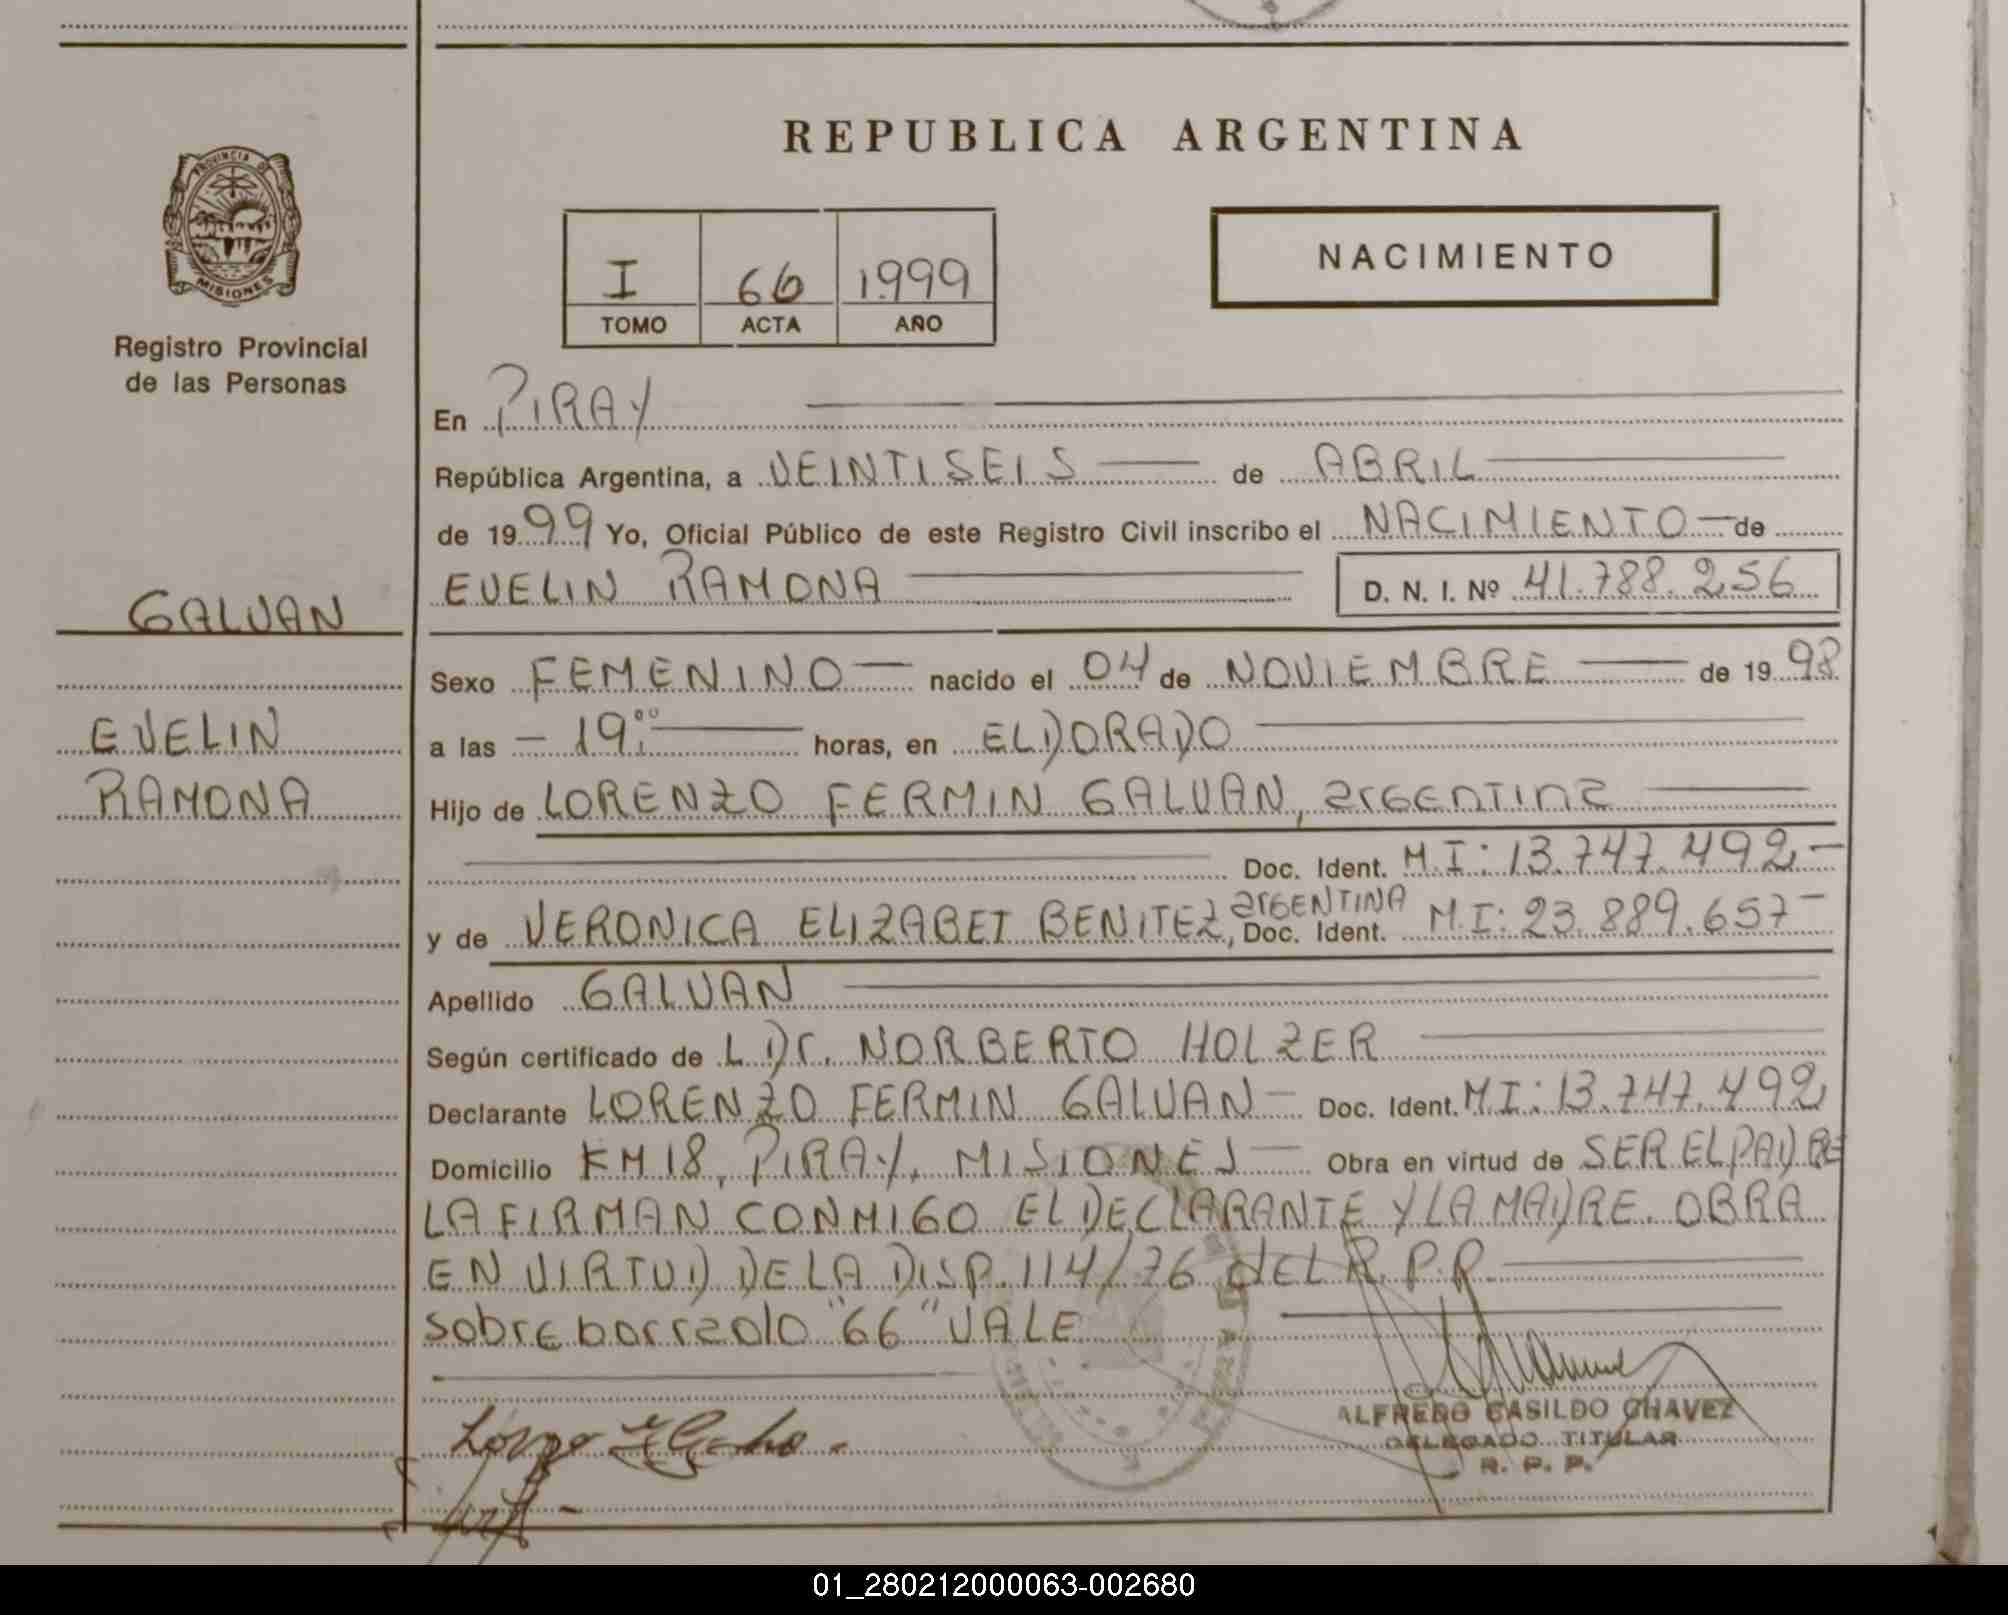 REPUBLICA ARGENTINA
PROVINCIA DE
MISIONES
Registro Provincial
de las Personas
I 66 1.999
TOMO ACTA AÑO
NACIMIENTO
En PIRAY
República Argentina, a VEINTISEIS de ABRIL
de 1999 Yo, Oficial Público de este Registro Civil inscribo el NACIMIENTO de
EVELIN RAMONA D. N. I. Nº 41.788.256
GALVAN
EVELIN
RAMONA
Sexo FEMENINO nacido el 04 de NOVIEMBRE de 1998
a las 19:00 horas, en ELDORADO
Hijo de LORENZO FERMIN GALVAN, argentina
Doc. Ident. M.I: 13.747.492
y de VERONICA ELIZABET BENITEZ, argentina Doc. Ident. M.I: 23.889.657
Apellido GALVAN
Según certificado de L Dr. NORBERTO HOLZER
Declarante LORENZO FERMIN GALVAN Doc. Ident. M I: 13.747.492
Domicilio KM 18, PIRAY, MISIONES Obra en virtud de SER EL PADRE
LA FIRMAN CONMIGO EL DECLARANTE Y LA MADRE. OBRA
EN VIRTUD DE LA DISP. 114/76 del R.P.P.
sobre borrado "66" VALE
ALFREDO CASILDO CHAVEZ
DELEGADO TITULAR
R. P. P.
01_280212000063-002680